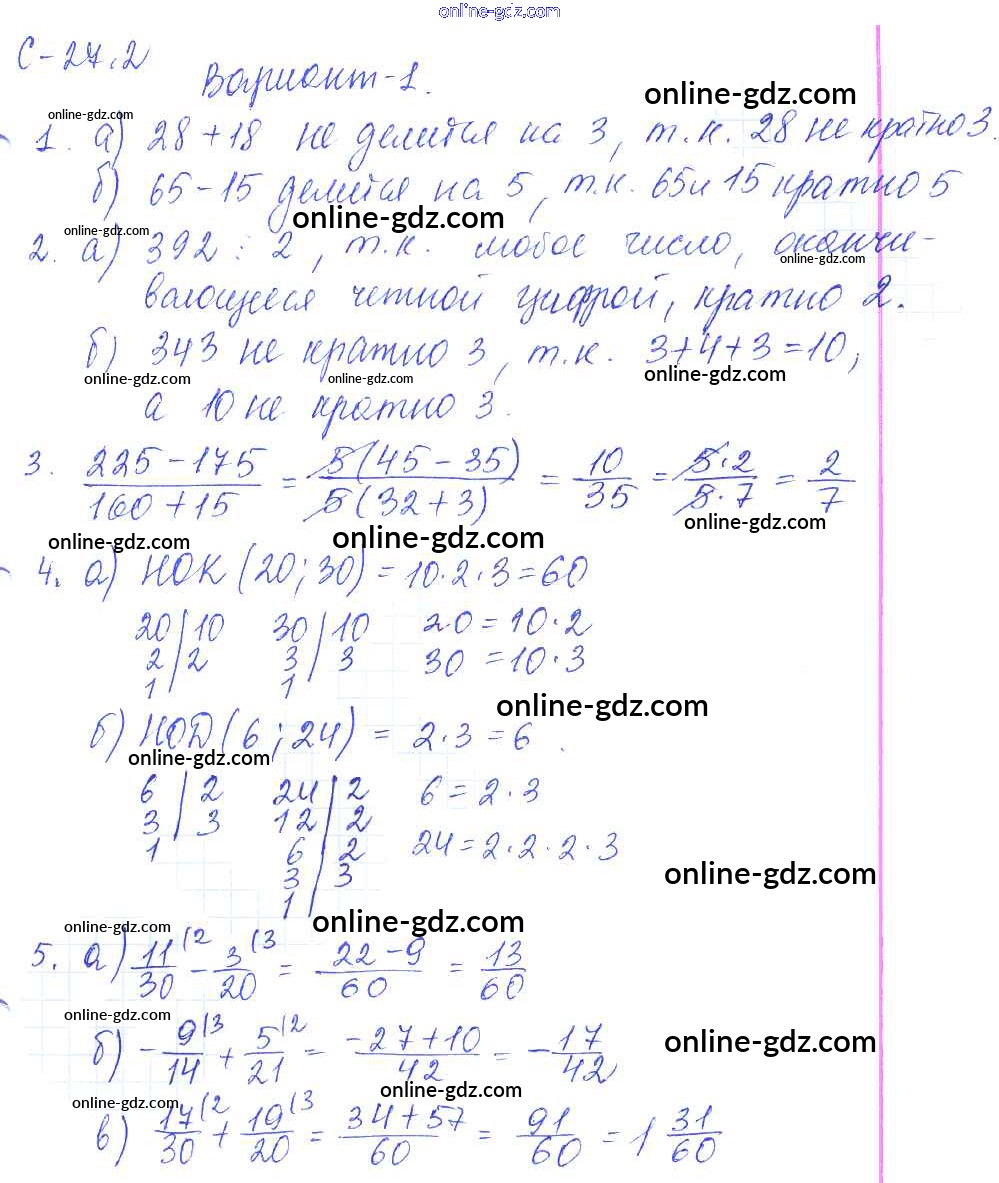 online-gdz.com
С-27.2
Вариант-1.
online-gdz.com
online-gdz.com
1. а) 28+18 не делится на 3, т.к. 28 не кратно 3.
б) 65-15 делится на 5, т.к. 65 и 15 кратно 5
online-gdz.com
online-gdz.com
2. а) 392 ⋮ 2, т.к. любое число, оканчи-
online-gdz.com
вающееся четной цифрой, кратно 2.
б) 343 не кратно 3, т.к. 3+4+3=10,
online-gdz.com online-gdz.com online-gdz.com
а 10 не кратно 3.
3. (225-175)/(160+15) = 5(45-35)/5(32+3) = 10/35 = 5·2/5·7 = 2/7
online-gdz.com
online-gdz.com online-gdz.com
4. а) НОК (20; 30) = 10·2·3=60
20|10 30|10 20=10·2
2|2 3|3 30=10·3
1| 1|
online-gdz.com
б) НОД (6; 24) = 2·3=6.
online-gdz.com
6|2 24|2 6=2·3
3|3 12|2
1 6|2 24=2·2·2·3
3|3
1|
online-gdz.com
online-gdz.com online-gdz.com
5. а) 11/30 (2 - 3/20 (3 = (22-9)/60 = 13/60
online-gdz.com
б) -9/14 (3 + 5/21 (2 = (-27+10)/42 = -17/42
online-gdz.com
online-gdz.com online-gdz.com
в) 17/30 (2 + 19/20 (3 = (34+57)/60 = 91/60 = 1 31/60